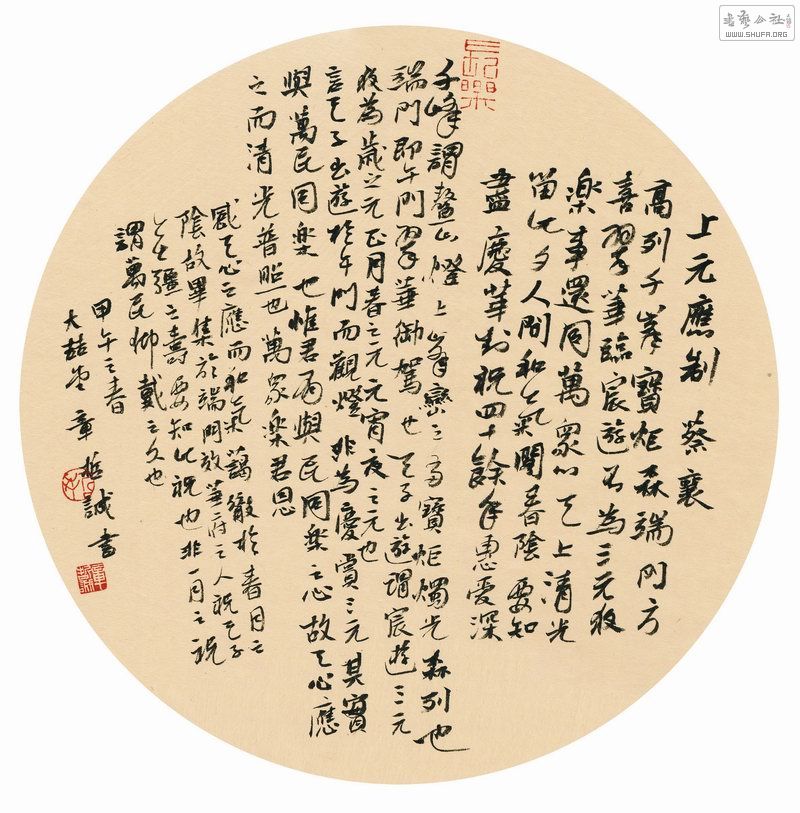 上元應制 蔡襄
高列千峯寶炬森端門方
喜翠華臨宸遊不為三元夜
樂事還同萬衆心天上清光
留此夕人間和氣閣春陰要知
盡慶華封祝四十餘年惠愛深
長樂
千峰謂鰲山燈上峯巒之高寶炬燭光森列也
端門即午門翠華御駕也天子出遊謂宸遊三元
夜為歲之元正月春之元元宵夜之元也
言天子出遊於午門而觀燈非為慶賞三元其實
與萬民同樂也惟君而與民同樂之心故天心應
之而清光普照也萬衆樂君恩
感天心之應而和氣藹徹於春月之
陰故畢集於端門故華府之人祝天子
以無疆之壽要知此祝也非一月之祝
謂萬民仰戴之久也
甲午之春
大喆堂章哲誠書
書藝公社
WWW.SHUFA.ORG